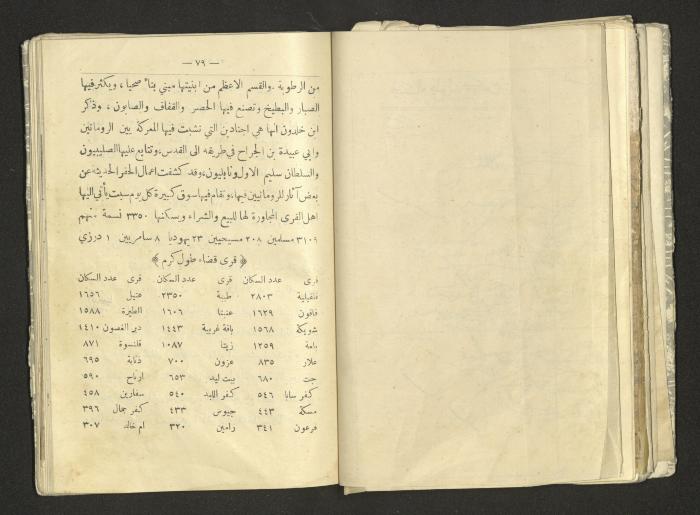 — ٧٩ —
من الرطوبة . والقسم الاعظم من ابنيتها مبني بناءً صحيا ، ويكثر فيها
الصبار والبطيخ وتصنع فيها الحصر والقفاف والصابون ، وذكر
ابن خلدون انها هي اجنادين التي نشبت فيها المعركة بين الرومانيين
وابي عبيدة بن الجراح في طريقه الى القدس، وتتابع عليها الصليبيون
والسلطان سليم الاول ونابليون، وقد كشفت اعمال الحفر الحديثه عن
بعض آثار للرومانيين فيها، وتقام فيها سوق كبيرة كل يوم سبت يأتي اليها
اهل القرى المجاورة لها للبيع والشراء ويسكنها ٣٣٥٠ نسمة منهم
٣١٠٩ مسلمين ٢٠٨ مسيحيين ٢٣ يهوديا ٨ سامريين ١ درزي
﴿ قرى قضاء طول كرم ﴾
قرى عدد السكان قرى عدد السكان قرى عدد السكان
قلقيلية ٢٨٠٣ طيبة ٢٣٥٠ عتيل ١٦٥٦
قاقون ١٦٢٩ عنبتا ١٦٠٦ الطيرة ١٥٨٨
شويكة ١٥٦٨ باقة غربية ١٤٤٣ دير الغصون ١٤١٠
بلعة ١٢٥٩ زيتا ١٠٨٧ قلنسوة ٨٧١
علار ٨٣٥ عزون ٧٠٠ ذنابة ٦٩٥
جت ٦٨٠ بيت ليد ٦٥٣ ارتاح ٥٩٠
كفر سابا ٥٤٦ كفر اللبد ٥٤٠ سفارين ٤٥٨
مسكة ٤٤٣ جيوس ٤٣٣ كفر جمال ٣٩٦
فرعون ٣٤١ رامين ٣٢٠ ام خالد ٣٠٧